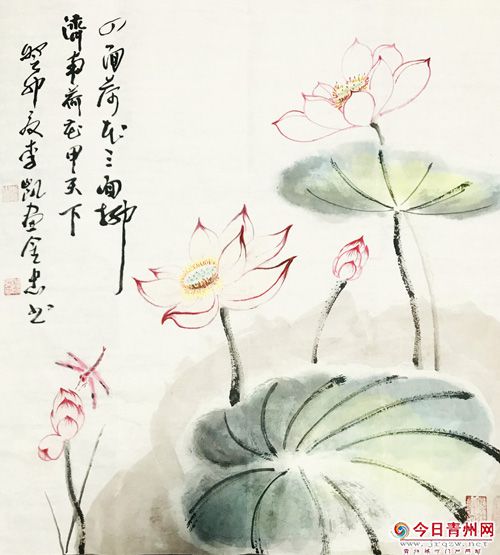 四面荷花三面柳
濟南荷花甲天下
癸卯夏李凱画金忠书
今日青州网
www.jrqzw.net